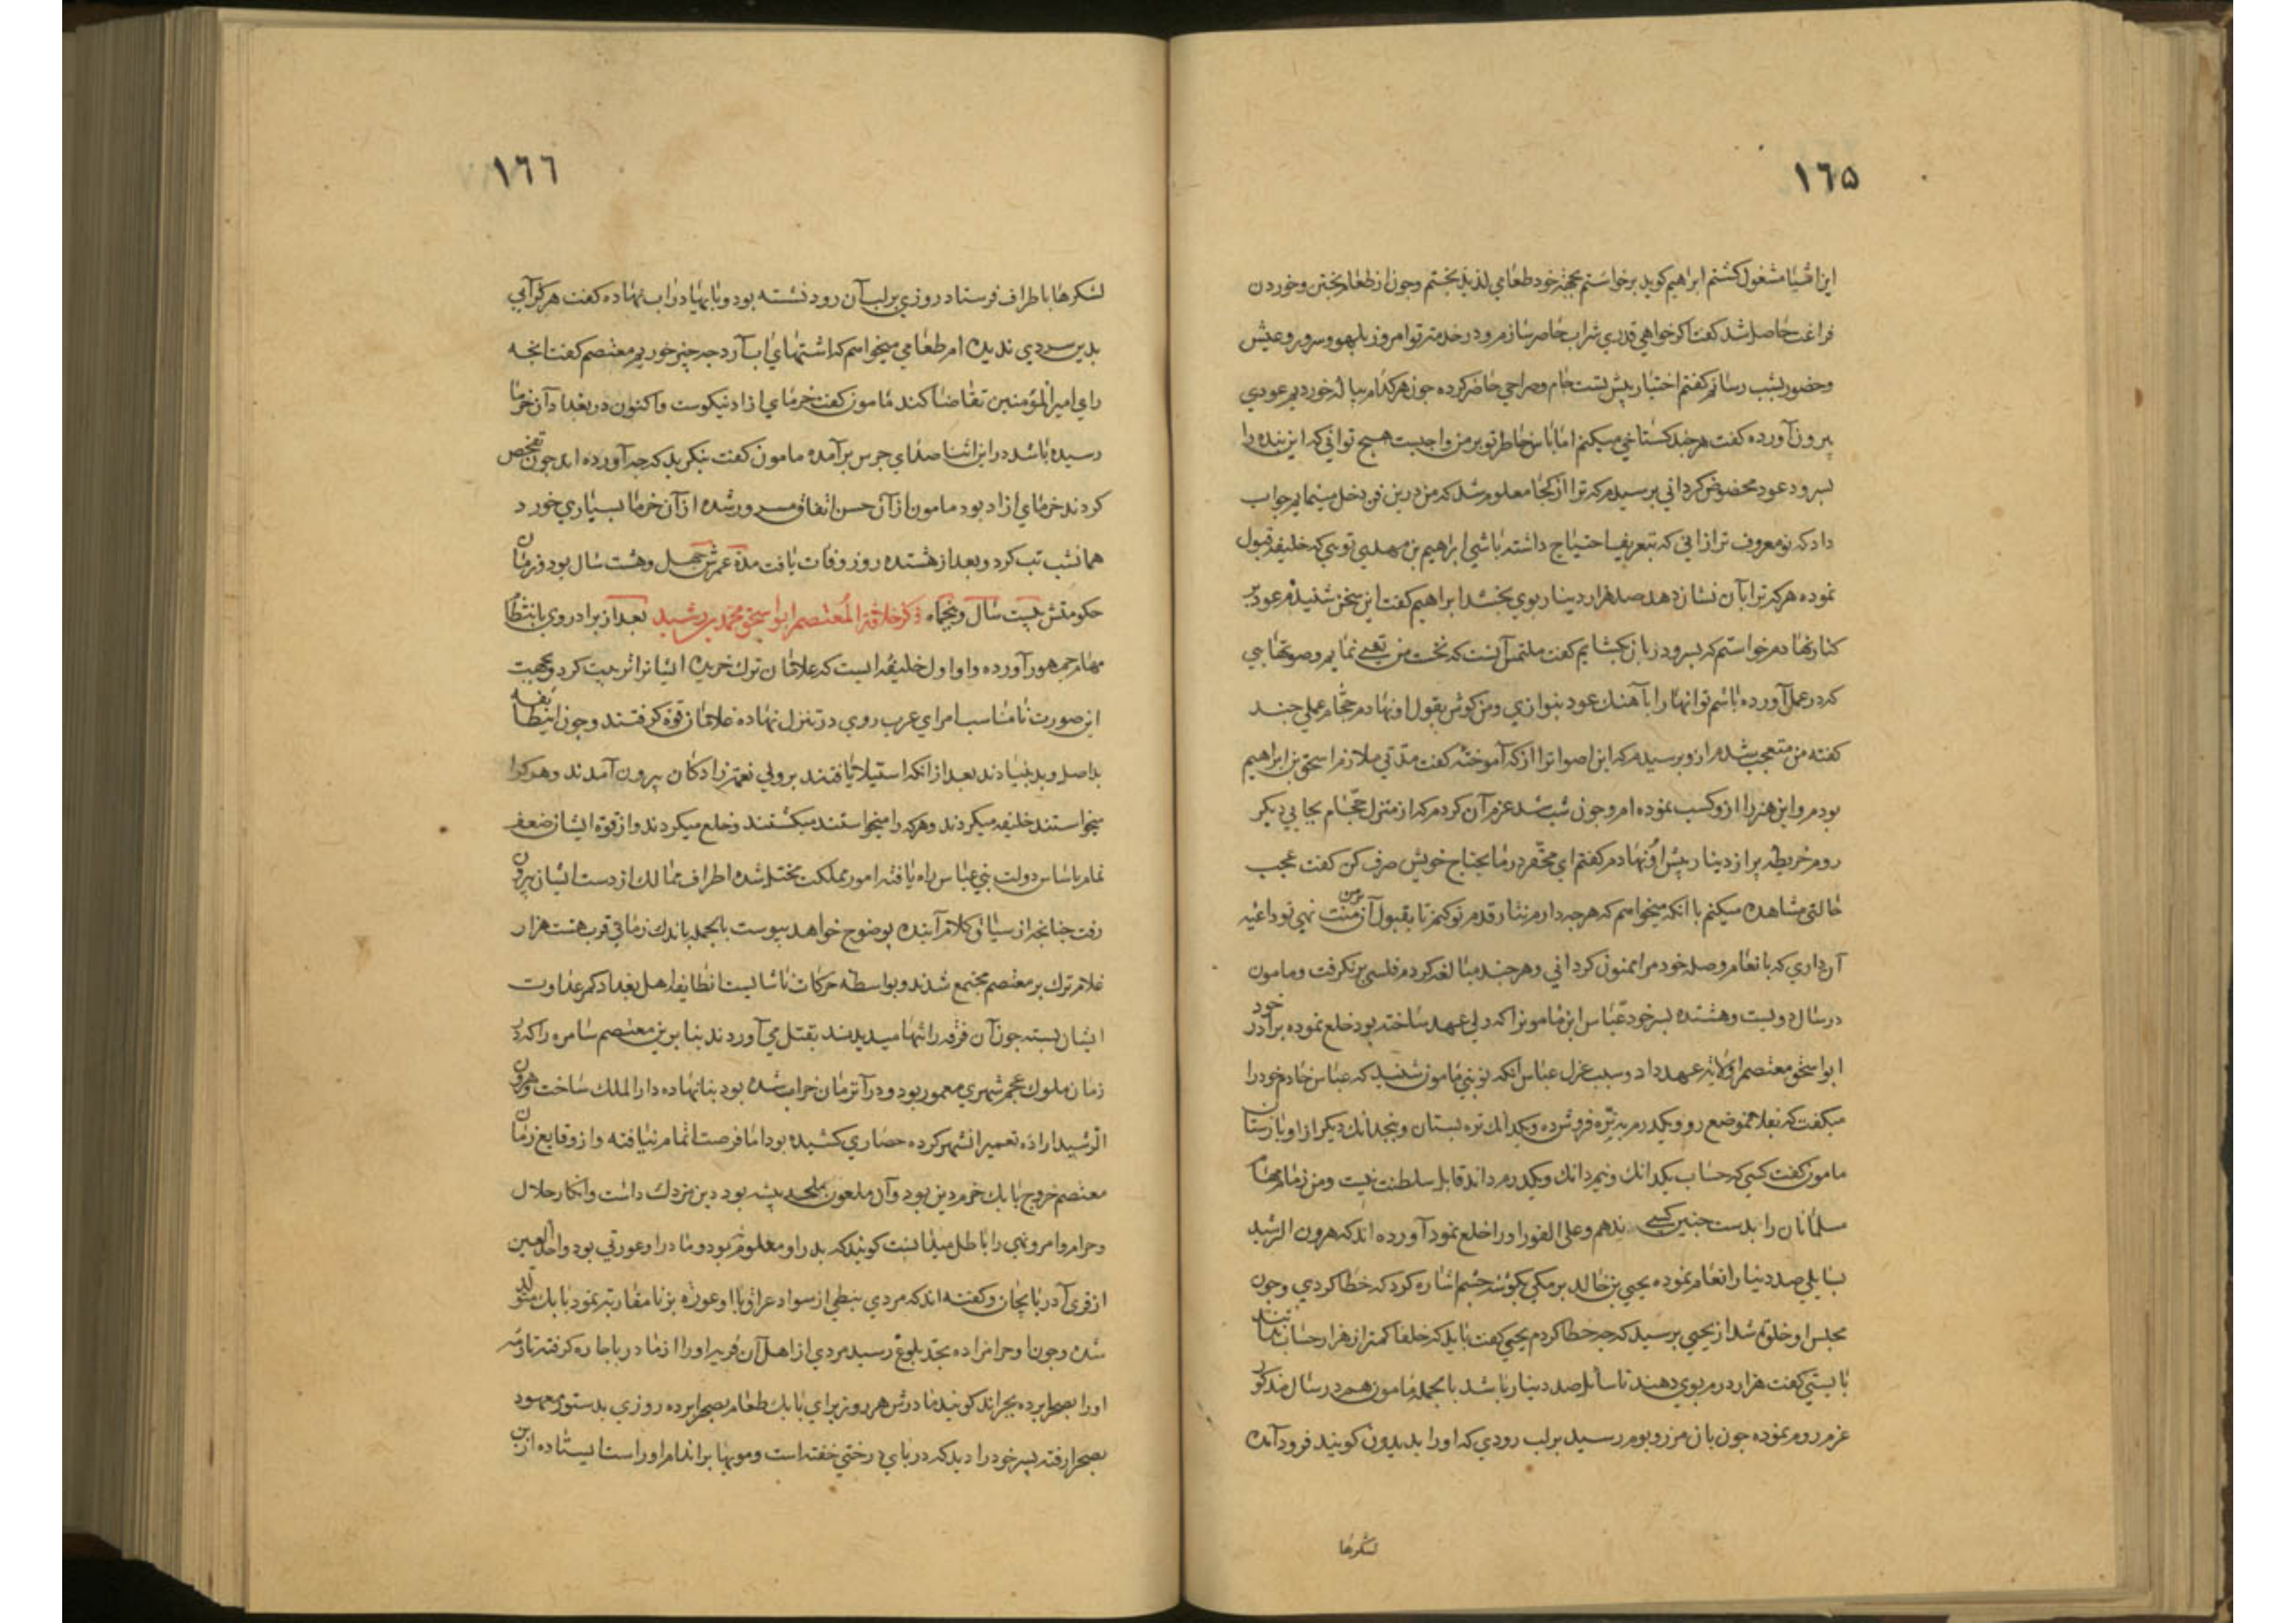 ١٦۵
این اشیا مشغول کشتم ابراهیم کوید برخواستم بجهة خود طعامی لذیذ بختم وجون از طعام بختن وخوردن
فراغت حاصل شد کفت اکر خواهی قدری شراب حاضر سازم ودر خدمت تو امروز بلهو وسرور وعیش
وحضور بشب رسانم کفتم اختیار بیش تست جام وصراحی حاضر کرده جون هر کدام بیاله خوردیم عودی
بیرون آورده کفت هر جند کستاخی میکنم اما باس خاطر تو بر من واجبست هیج توانی که این بنده را
بسرود عود مخصوص کردانی برسیدم که ترا از کجا معلوم شد که من درین فن دخل مینمایم جواب
داد که تو معروف تر از انی که بتعریف احتیاج داشته باشی ابراهیم بن مهدی تویی که خلیفه قبول
نموده هر که ترا بآن نشان دهد صد هزار دینار بوی بخشد ابراهیم کفت این سخن شنیدم عود بر
کنار نهادم خواستم که بسرود زبان بکشایم کفت ملتمس آنست که نخست من تغنی نمایم وصوتهایی
که در عمل آورده باشم تو انها را بآهنک عود بنوازی ومن کوش بقول او نهادم حجام عملی جند
کفته من متعجب شدم ازو برسیدم که این اصواترا از که آموختهٔ کفت مدتی ملازم اسحق بن ابراهیم
بودم واین هنر را ازو کسب نموده ام وجون شب شد عزم آن کردم که از منزل حجام بجایی دیکر
روم خریطه بر از دینار بیش او نهادم کفتم این محقر در مایحتاج خویش صرف کن کفت عجب
حالتی مشاهده میکنم با انکه میخواسم که هرجه دارم نثار قدم تو کنم تا بقبول آن بر من منت نهی تو داعیه
آن داری که بانعام وصله خود مرا ممنون کردانی وهر جند مبالغه کردم فلسی برنکرفت ومامون
در سال دویست وهشتده بسر خود عباس ابن مامونرا که ولی عهد ساخته بود خلع نموده برادر خود
ابو اسحق معتصم را ولایة عهد داد وسبب عزل عباس انکه نوبتی مامون شنید که عباس خادم خود را
میکفت که بفلان موضع رو ویکدرم بتره فروش ده ویکدانک تره بستان وبنجدانک دیکر از او بازستان
مامون کفت کسی که حساب یکدانک ونیم دانک ویکدرم داند قابل سلطنت نیست ومن زمام مهام
مسلمانان را بدست جنین کسی ندهم وعلی الفور او را خلع نمود آورده اند که هرون الرشید
بسایلی صد دینار انعام نموده یحیی بن خالد برمکی بکوشه جشم اشاره کرد که خطا کردی وجون
مجلس او خلوة شد از یحیی برسید که جه خطا کردم یحیی کفت باید که خلفا کمتر از هزار حساب ندانند
بایستی کفت هزار درم بوی دهند تا سائل صد دینار باشد بالجمله مامون هم در سال مذکور
عزم روم نموده جون بان مرز وبوم رسید بر لب رودی که او را بدیدون کویند فرود آمده
لشکرها
١٦٦
لشکرها باطراف فرستاد روزی بر لب آن رود نشسته بود وبایها در اب نهاده کفت هرکز آبی
بدین سردی ندیده ام طعامی میخواسم که اشتهای اب آرد جه جیز خوریم معتصم کفت انجه
رای امیر المؤمنین تقاضا کند مامون کفت خرمای ازاد نیکوست واکنون در بغداد آن خرما
رسیده باشد در این اثنا صدای جرس برآمده مامون کفت بنکرید که جه آورده اند جون تفحص
کردند خرمای ازاد بود مامون از آن حسن اتفاق مسرور شده از آن خرما بسیاری خورد
همانشب تب کرد وبعد از هشتده روز وفات یافت مدة عمرش جهل وهشت سال بود وزمان
حکومتش بیست سال وبنجماه ذکر خلافة المعتصم ابو اسحق محمد بن رشید بعد از برادر وی بانتظام
مهام جمهور آورده واو اول خلیفه ایست که غلامان ترک خریده ایشانرا تربیت کرد وبجهت
این صورت نامناسب امرای عرب روی در تنزل نهاده غلامان قوة کرفتند وجون این طایفه
بد اصل وبد بنیادند بعد از انکه استیلا یافتند بر ولی نعمت زادکان بیرون آمدند وهر کرا
میخواستند خلیفه میکردند وهر که را میخواستند میکشتند وخلع میکردند واز قوة ایشان ضعف
تمام باساس دولت بنی عباس راه یافته امور مملکت مختل شده اطراف ممالک از دست ایشان بیرون
رفت جنانجه از سیاق کلام آینده بوضوح خواهد بیوست بالجمله باندک زمانی قرب هشت هزار
غلام ترک بر معتصم مجتمع شدند وبواسطه حرکات ناشایست انطایفه اهل بغداد کمر عداوت
ایشان بسته جون آن فرقه را تنها میدیدند بقتل می آوردند بنا برین معتصم سامره را که در
زمان ملوک عجم شهری معمور بود ودر آنزمان خراب شده بود بنا نهاده دار الملک ساخت وهرون
الرشید اراده تعمیر انشهر کرده حصاری کشیده بود اما فرصت اتمام نیافته واز وقایع زمان
معتصم خروج بابک خرم دین بود وآن ملعون ملحد بیشه بود دین مزدک داشت وانکار حلال
وحرام وامر ونهی را باطل میدانست کویند که بدر او معلوم نبود ومادر او عورتی بود واحد العین
از قری آدربایجان وکفته اند که مردی نبطی از سواد عراق با او عورة بزنا مقاربة نمود بابک متولد
شده وجون او حرامزاده بحد بلوغ رسید مردی از اهل آن قریه او را از مادر باجاره کرفته تا رمه
او را بصحرا برده بجراند کویند مادرش هر روز برای بابک طعام بصحرا برده روزی بدستور معهود
بصحرا رفته بسر خود را دید که در بای درختی خفته است ومویها بر اندام او راست ایستاده از بن